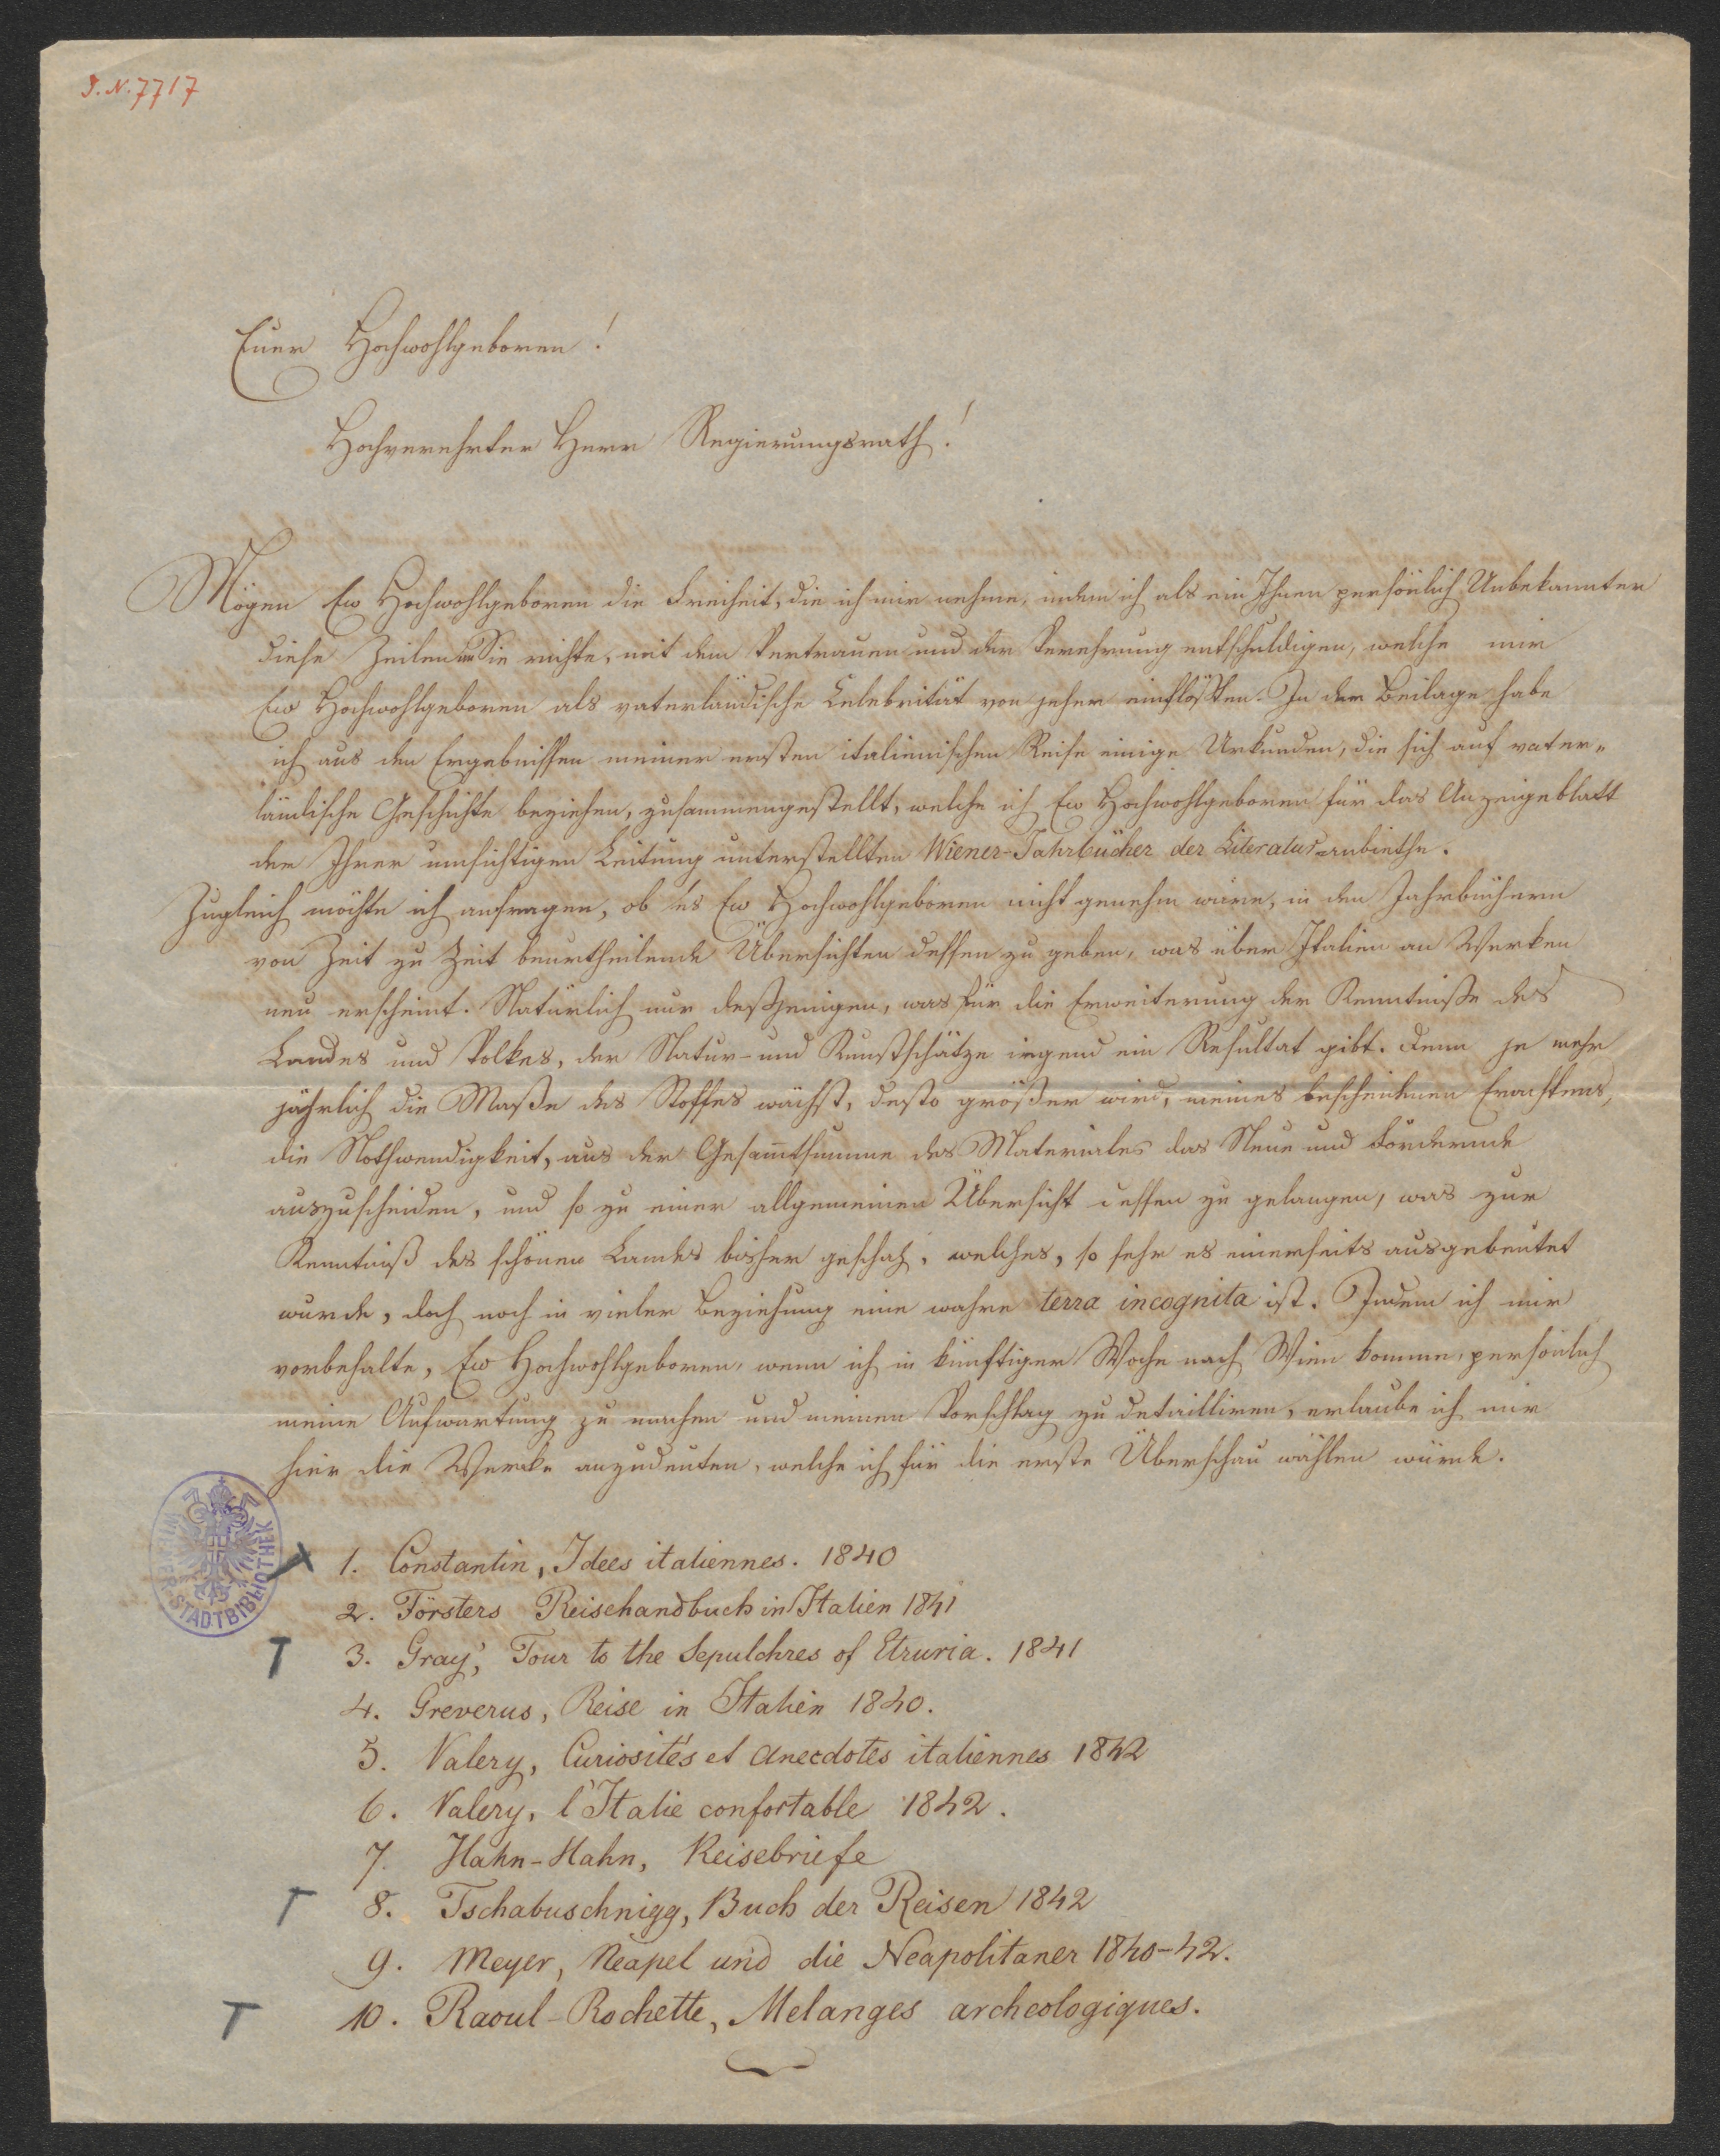 I. N. 7717
Euer Hochwohlgeboren!
Hochverehrter Herr Regierungsrath!
Mögen Ew Hochwohlgeboren die Freiheit, die ich mir nehme, indem ich als ein Ihnen persönlich Unbekannter
diese Zeilen an Sie richte, mit dem Vertrauen und der Verehrung entschuldigen, welche mir
Ew Hochwohlgeboren als vaterländische Celebrität von jeher einflößten. In der Beilage habe
ich aus den Ergebnissen meiner ersten italienischen Reise einige Urkunden, die sich auf vater„
ländische Geschichte beziehen, zusammengestellt, welche ich Ew Hochwohlgeboren für das Anzeigeblatt
der Ihrer umsichtigen Leitung unterstellten Wiener-Jahrbücher der Literatur anbiethe.
Zugleich möchte ich anfragen, ob es Ew Hochwohlgeboren nicht genehm wäre, in den Jahrbüchern
von Zeit zu Zeit beurtheilende Übersichten dessen zu geben, was über Italien an Werken
neu erscheint. Natürlich nur desjenigen, was für die Erweiterung der Kenntniße des
Landes und Volkes, der Natur- und Kunstschätze irgend ein Resultat gibt. Denn je mehr
jährlich die Maße des Stoffes wächst, desto größer wird, meines bescheidenen Erachtens,
die Nothwendigkeit, aus der Gesam̅tsumme des Materiales das Neue und Fördernde
auszuscheiden, und so zu einer allgemeinen Übersicht dessen zu gelangen, was zur
Kenntniß des schönen Landes bisher geschah, welches, so sehr es einerseits ausgebeutet
wurde, doch noch in vieler Beziehung eine wahre terra incognita ist. Indem ich mir
vorbehalte, Ew Hochwohlgeboren, wenn ich in künftiger Woche nach Wien komme, persönlich
meine Aufwartung zu machen und meinen Vorschlag zu detailliren, erlaube ich mir
hier die Werke anzudeuten, welche ich für die erste Überschau wählen würde.
WIENER-STADTBIBLIOTHEK
1. Constantin, Idees italiennes. 1840
2. Försters Reisehandbuch in Italien 1841
T 3. Gray, Tour to the Sepulchres of Etruria. 1841
4. Greverus, Reise in Italien 1840.
5. Valery, Curiosités et Anecdotes italiennes 1842
6. Valery, l'Italie confortable 1842.
7. Hahn-Hahn, Reisebriefe
T 8. Tschabuschnigg, Buch der Reisen 1842
9. Meyer, Neapel und die Neapolitaner 1840-42.
T 10. Raoul-Rochette, Melanges archeologiques.